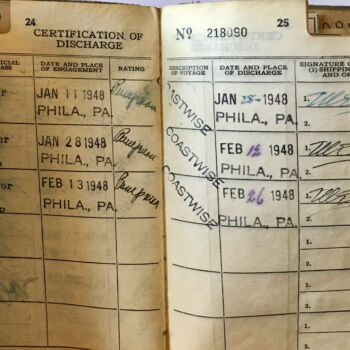 24
CERTIFICATION OF
DISCHARGE
DATE AND PLACE
OF ENGAGEMENT
RATING
JAN 11 1948
PHILA., PA.
JAN 28 1948
PHILA., PA.
FEB 13 1948
PHILA., PA.
Nº 218090
25
DESCRIPTION
OF VOYAGE
DATE AND PLACE
OF DISCHARGE
SIGNATURE O
(1) SHIPPING
AND OF
COASTWISE
JAN 28 1948
PHILA., PA.
1.
2.
COASTWISE
FEB 12 1948
PHILA., PA.
1.
2.
COASTWISE
FEB 26 1948
PHILA., PA.
1.
2.
1.
2.
1.
2.
1.
2.
1.